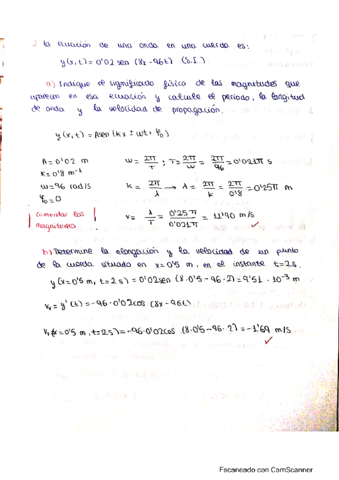 2 la ecuación de una onda en una cuerda es:
y(x,t) = 0'02 sen (8x - 96t) (S.I.)
a) Indique el significado físico de las magnitudes que
aparecen en esa ecuación y calcule el periodo, la longitud
de onda y la velocidad de propagación.
y(x,t) = Asen (kx ± wt + φ₀)
A = 0'02 m w = 2π/T ; T = 2π/w = 2π/96 = 0'021π s
K = 0'8 m⁻¹
w = 96 rad/s k = 2π/λ → λ = 2π/k = 2π/0'8 = 0'25π m
φ₀ = 0
comentar las
magnitudes
v = λ/T = 0'25π/0'021π = 11'90 m/s ✓
b) Determine la elongación y la velocidad de un punto
de la cuerda situado en x = 0'5 m, en el instante t = 2s.
y(x = 0'5 m, t = 2s) = 0'02sen (8·0'5 - 96·2) = 9'51 · 10⁻³ m
v = y'(t) = -96·0'02cos (8x - 96t)
v(x = 0'5 m, t = 2s) = -96·0'02cos (8·0'5 - 96·2) = -1'69 m/s ✓
Escaneado con CamScanner